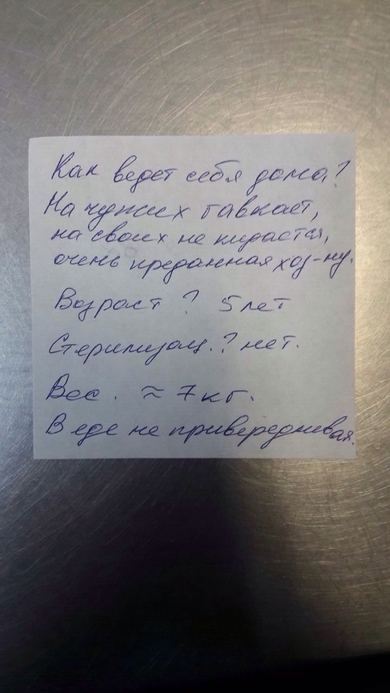 Как ведет себя дома?
На чужих гавкает,
на своих не кидается,
очень преданная хоз-ну.
Возраст ? 5 лет
Стерилизац.? нет.
Вес. ≈ 7 кг.
В еде не привередливая.